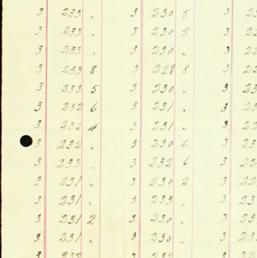 3 233 " 3 230 5 3 23
3 233 " 3 230 5 3 23
3 233 " 3 230 " 3 23
3 233 8 3 229 8 3 23
3 233 5 3 230 " 3 23
3 232 6 3 231 " 3 23
3 232 4 3 231 " 3 23
3 232 " 3 230 6 3 23
3 233 " 3 232 6 3 23
3 231 " 3 230 2 3 23
3 231 " 3 230 " 3 23
3 231 2 3 230 " 3 23
3 231 " 3 230 " 3 23